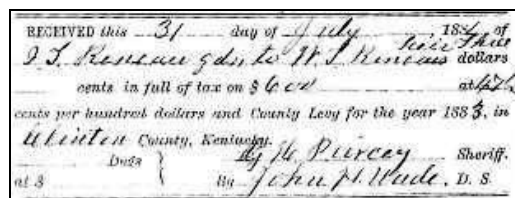 RECEIVED this 31 day of July, 188 of
J. T. Reneau gdn to W. T. Reneau dollars
cents in full of tax on $600 at 47½
cents per hundred dollars and County Levy for the year 1883, in
Clinton County, Kentucky.
Dogs Piercey Sheriff.
at $ By John H. Wade, D. S.